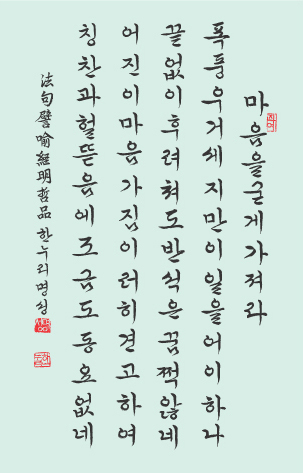 마음을굳게가져라
폭풍우거세지만이일을어이하나
끝없이후려쳐도반석은꿈쩍않네
어진이마음가짐이러히견고하여
칭찬과헐뜯음에조금도동요없네
法句譬喻經明哲品 한누리명상